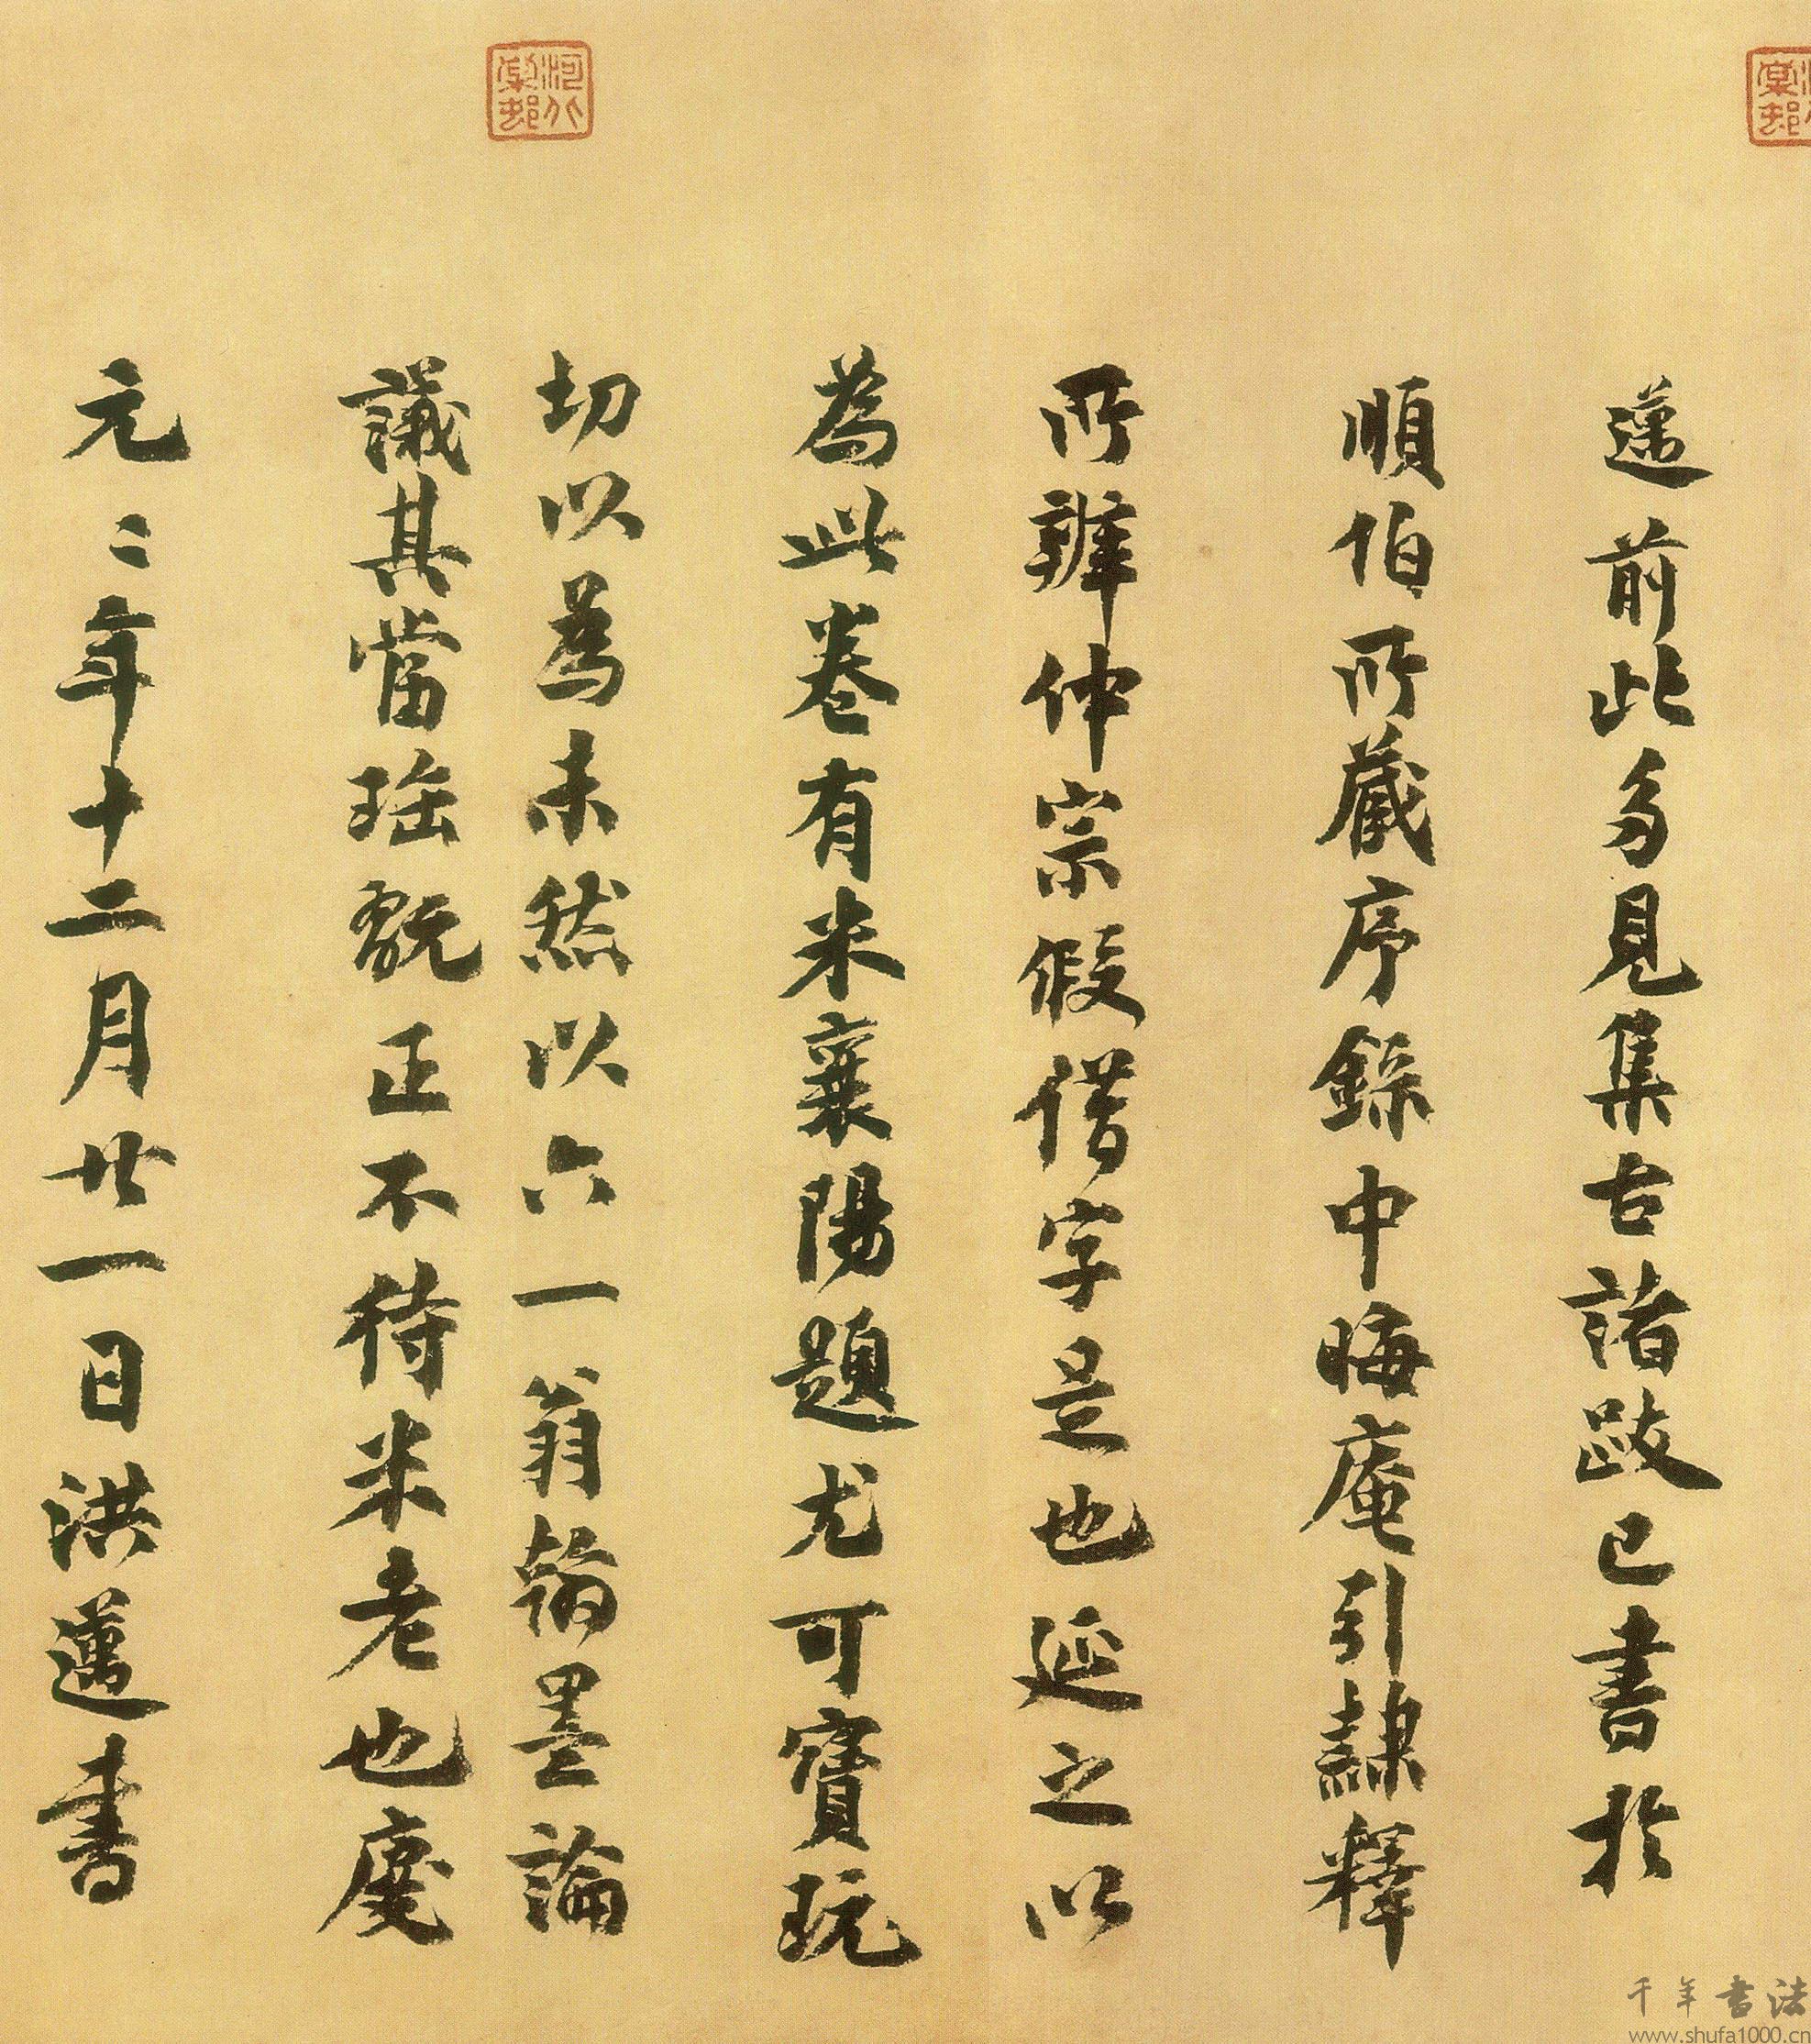 邁前此多見集古諸跋已書於
順伯所藏序錄中晦庵引隸釋
所辨仲宗假借字是也延之以
為此卷有米襄陽題尤可寶玩
切以為未然以六一翁翰墨論
議其當瑤翫正不待米老也慶
元二年十二月廿一日洪邁書
千年書法
www.shufa1000.cn